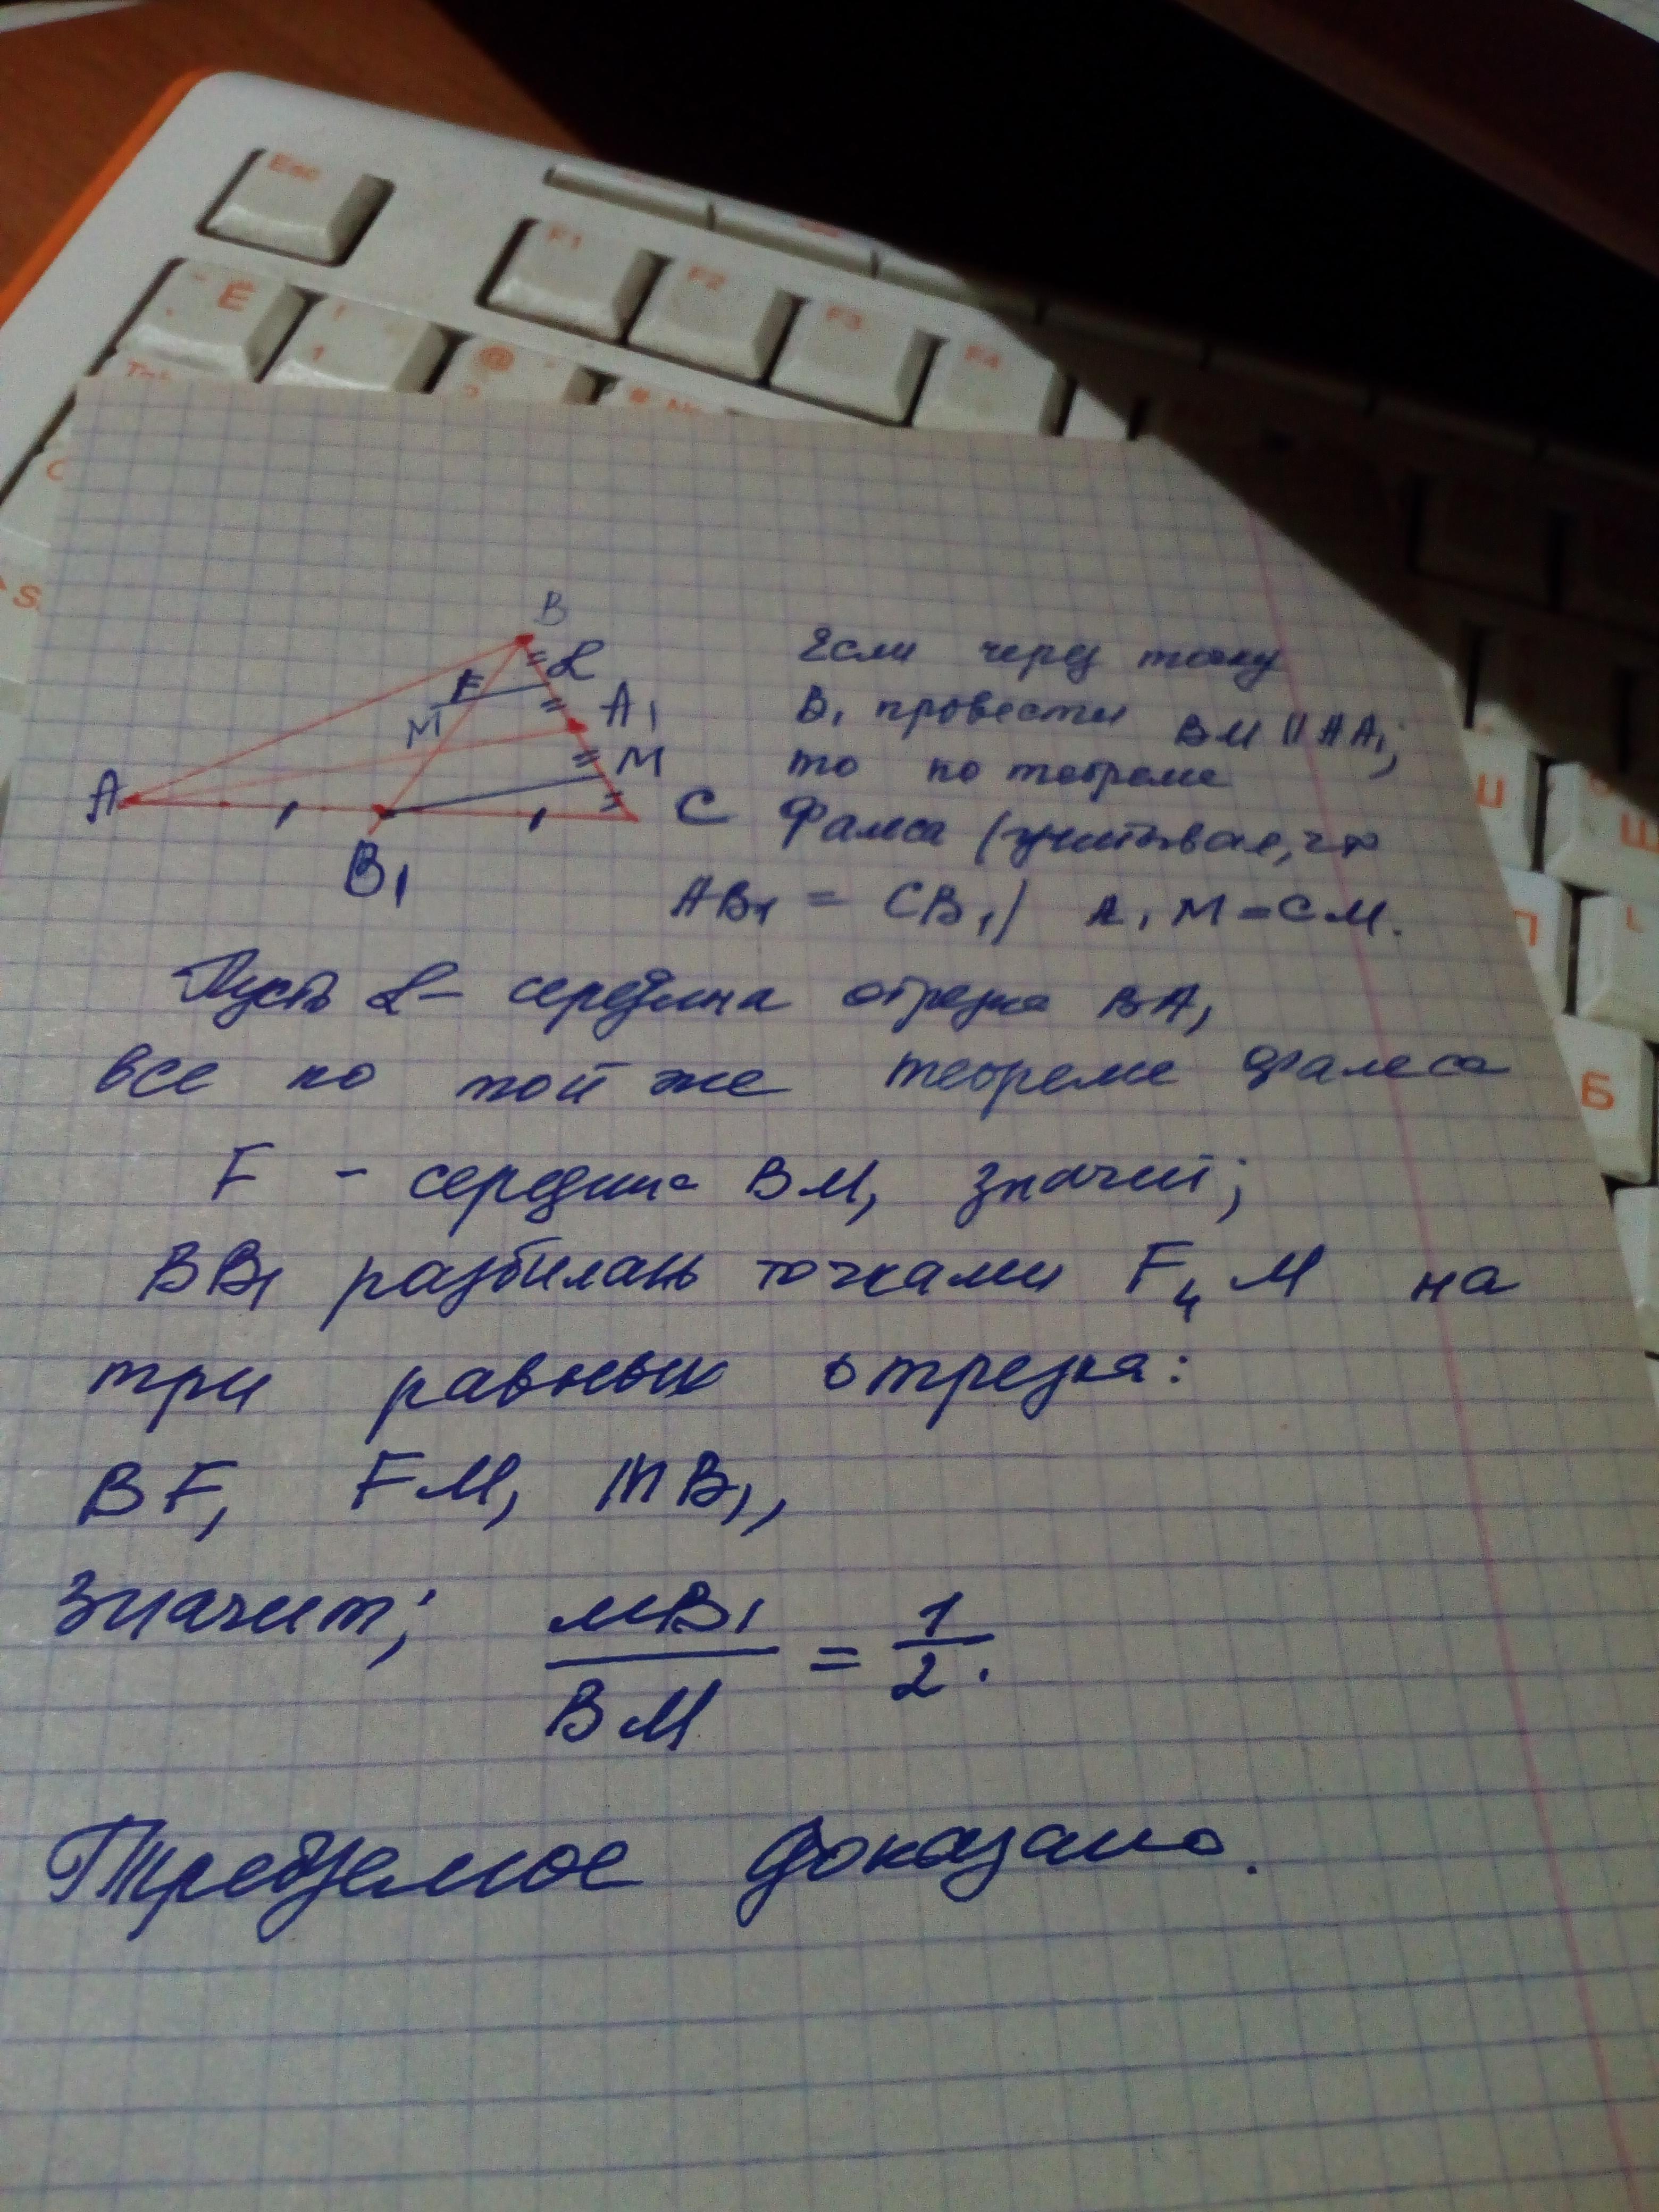 Esc
F1
F2
F3
F4
Ё
!
1
@
B
L
F
A1
M
M
A
C
B1
Если через точку
B1 провести BM || AA1;
то по теореме
Фалеса (учитывая, что
AB1 = CB1) A1M=CM.
Пусть L- середина отрезка BA,
все по той же теореме Фалеса
F - середина BM, значит;
BB1 разбилась точками F и M на
три равных отрезка:
BF, FM, MB1,
значит; MB1/BM = 1/2.
Требуемое доказано.
Б